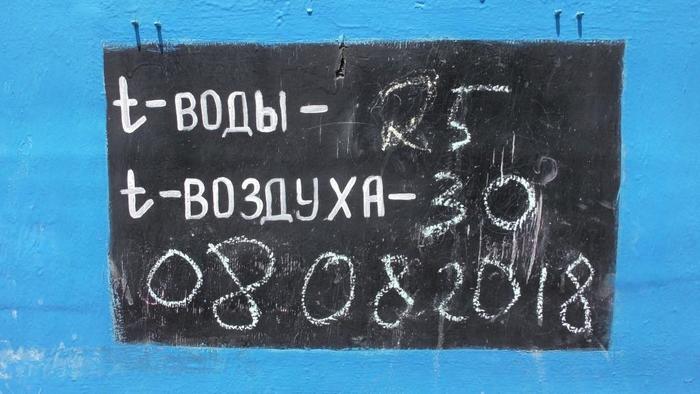 t-ВОДЫ- 25
t-ВОЗДУХА- 30
08 08 2018